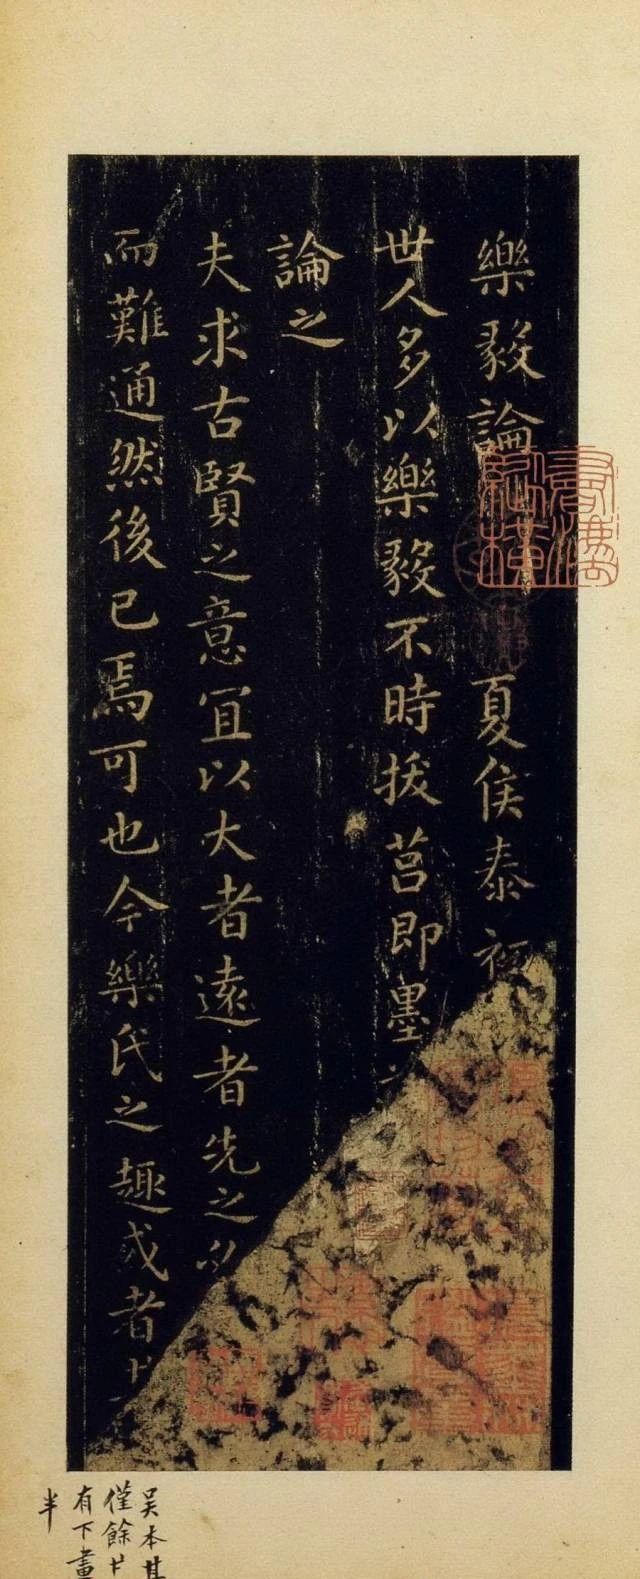 樂毅論 夏侯泰初
世人多以樂毅不時拔莒即墨
論之
夫求古賢之意宜以大者遠者先之必
而難通然後已焉可也今樂氏之趣或者
吴本其
僅餘
有下畫
半